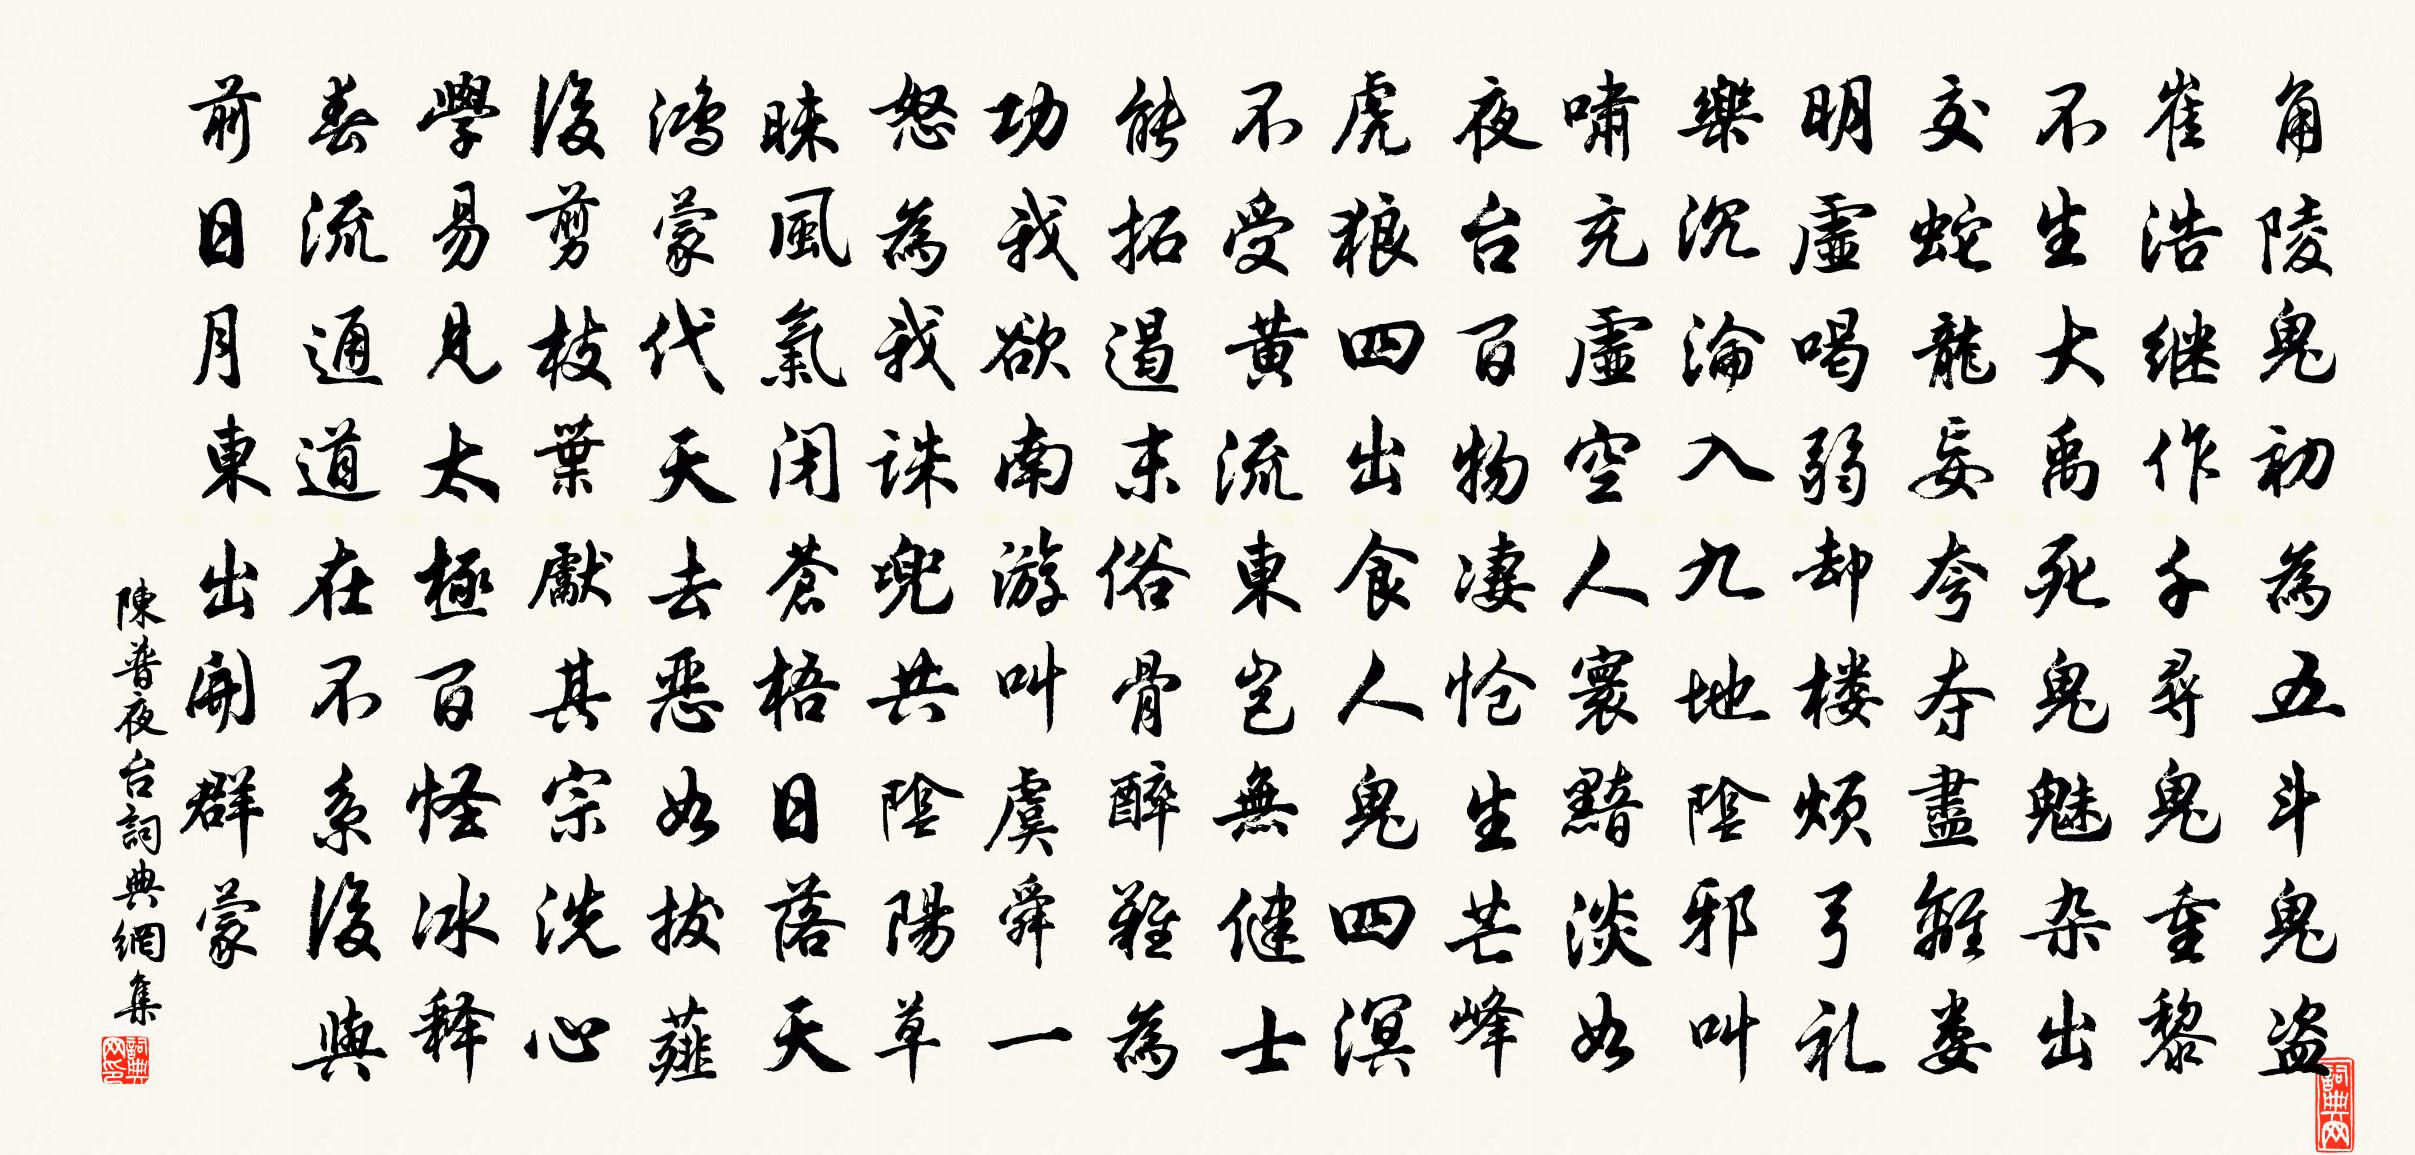 角陵鬼初為五斗鬼盗
崔浩继作千尋鬼重黎
不生大禹死鬼魅杂出
交蛇龍妄夸夺盡離娄
明虛喝弱却楼烦弓礼
樂沉淪入九地陰邪叫
嘯充虛空人寰黯淡如
夜台百物凄怆生芒峰
虎狼四出食人鬼四溟
不受黄流東岂無健士
能拓遏末俗骨醉難為
功我欲南游叫虞舜一
怒為我诛兜共陰陽草
昧風氣闭苍梧日落天
鸿蒙代天去恶如拔薤
後剪枝葉獻其宗洗心
學易見太極百怪冰释
春流通道在不系後與
前日月東出開群蒙
陳普夜台詞典網集
詞典网
詞典网